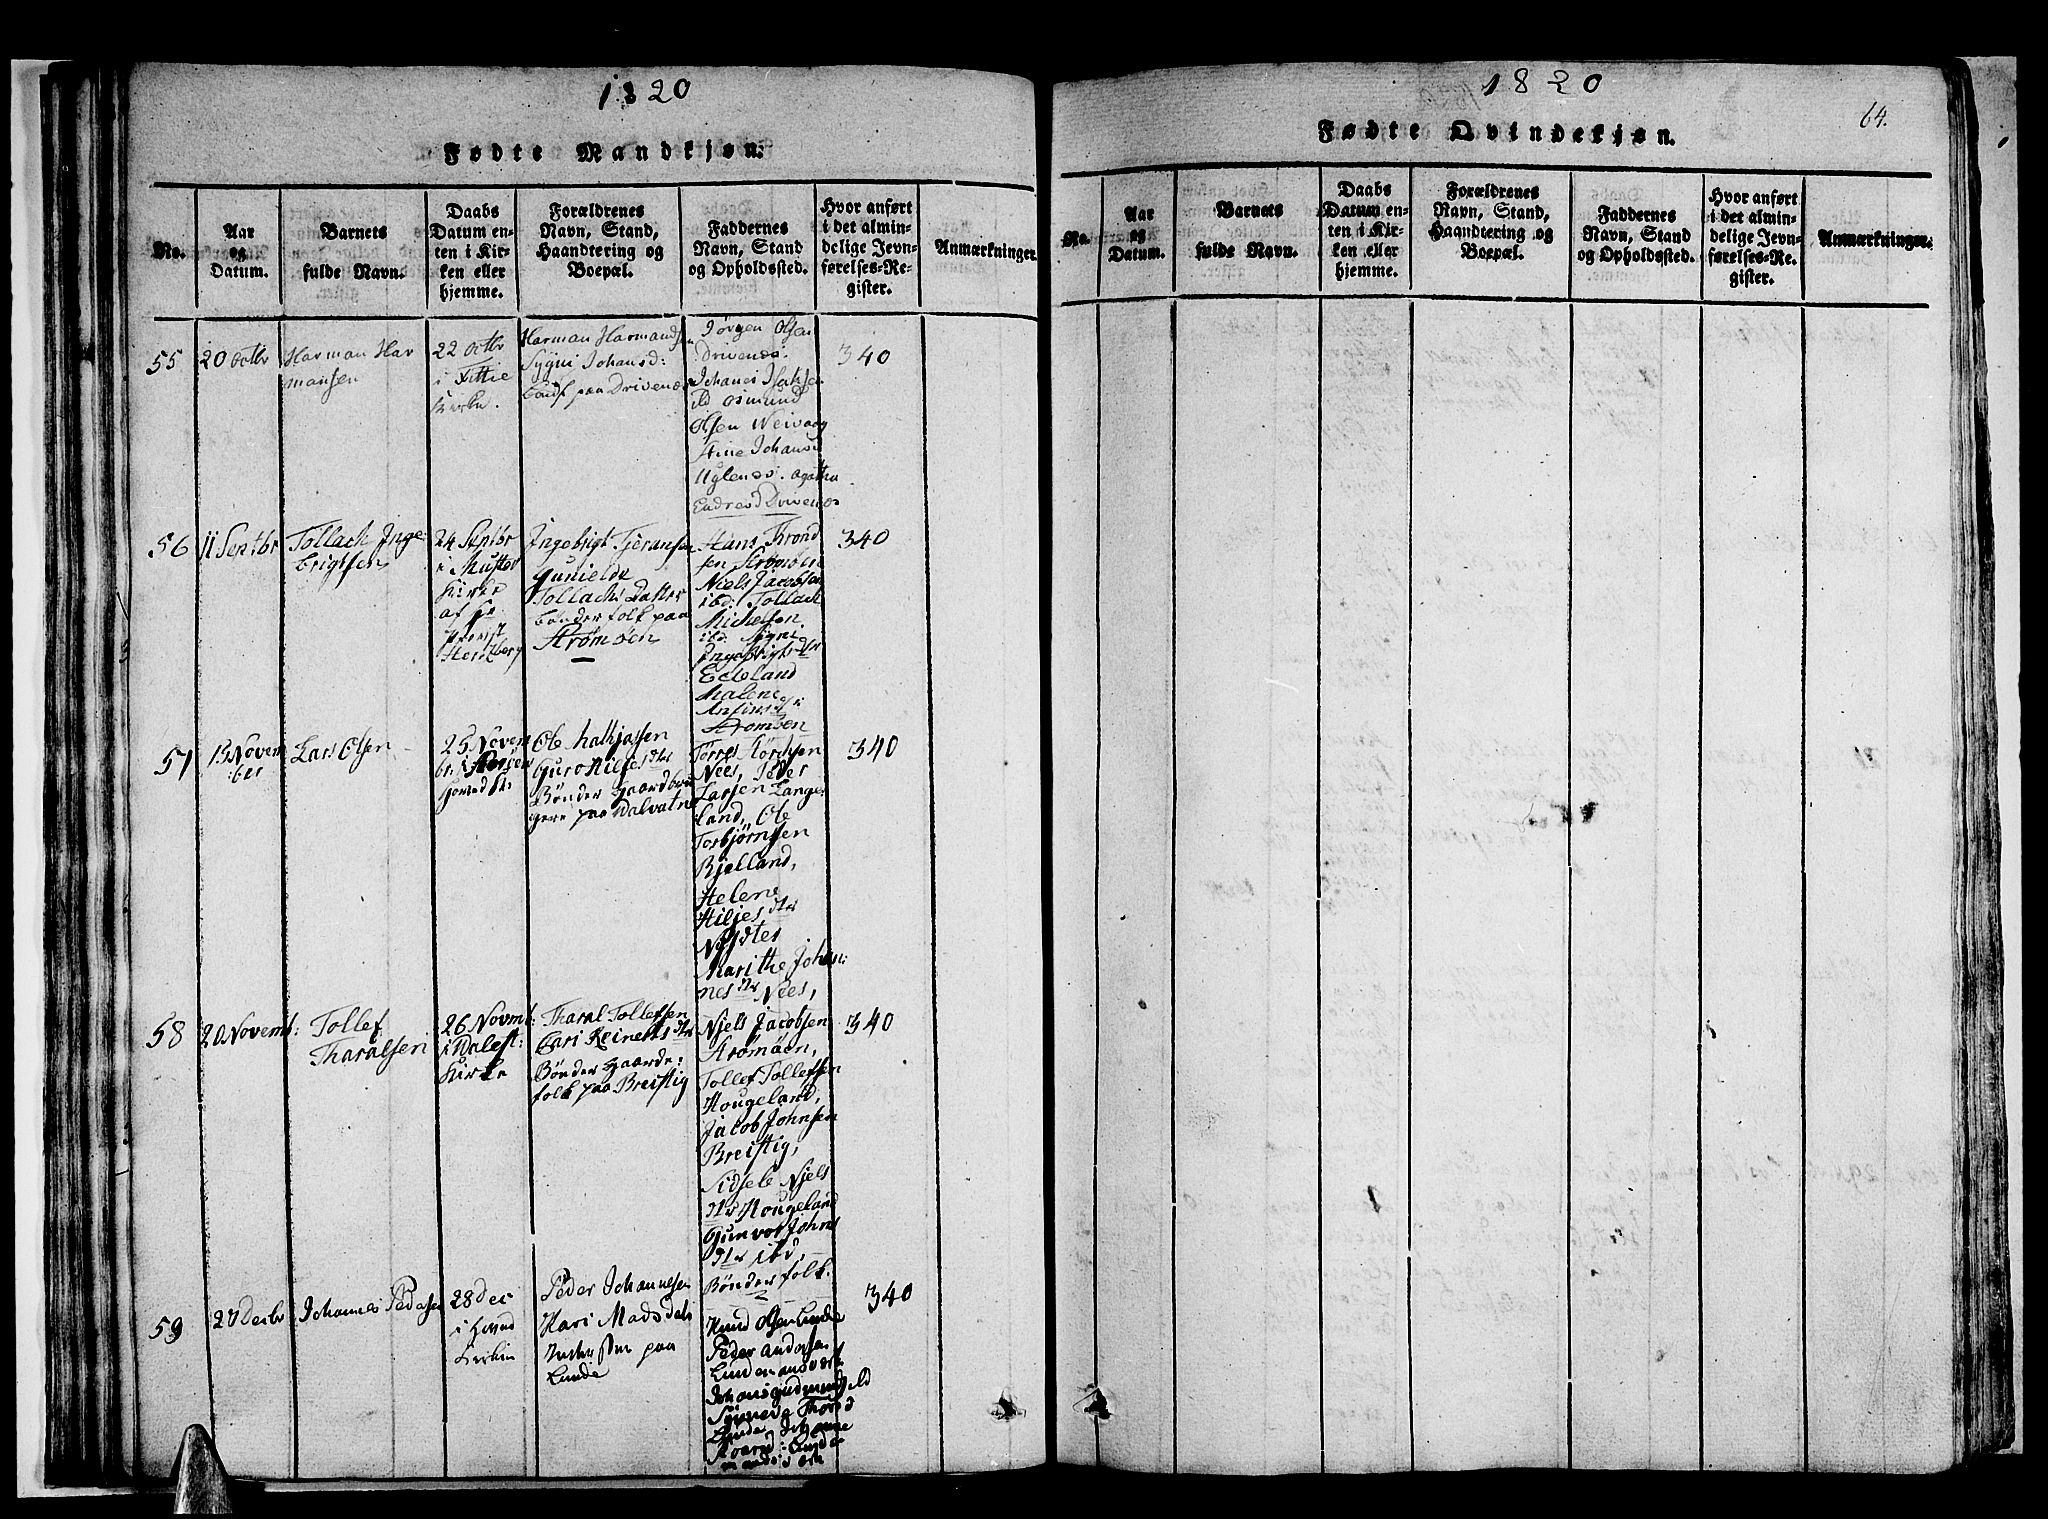 1820
Fødte Mandkjøn.
No.
Aar
og
Datum.
Barnets
fulde Navn.
Daabs
Datum en-
ten i Kir-
ken eller
hjemme.
Forældrenes
Navn, Stand,
Haandtering og
Boepæl.
Faddernes
Navn, Stand
og Opholdssted.
Hvor anført
i det almin-
delige Jevn-
førelses-Re-
gister.
Anmærkninger.
55
20 octbr
Harman Har
mansen
22 octbr
i
Kirke.
Harman Harmandsen
Sygni Johansd:
paa Drivenæs
Jørgen Olsen
Drivenæs.
Johanes
Osmund
Olsen
Stine Johansd
Uglenæs. Agatha
Endresd Drivenæs
340
56
11 Sentbr
Tollack Inge
brigtsen
24 Sentbr
i Muster
Kirke
af Hr
Hertzberg
Ingebrigt Tjeransen
Gunielde
Tollachs Datter
Bønder folk paa
Strømøen
Hans Trond
sen Strømøen
Niels Jacobsen
ibd: Tollack
Michelsen
ibd: Signe
Ingebrigts dtr
Eideland
Malene
Strømøen
340
57
13 Novem
ber
Lars Olsen
25 Novem
br. i
Hoved K:
Ole Mathjassen
Guro Nilses dtr
Bønder Gaardbru
gere paa Dalvatne
Tørres
Nees, Peder
Larsen Lange
land, Ole
Torbjørnsen
Bjelland,
Helene
Hiljes dtr
Marithe Johan:
nes dtr Nees,
340
58
20 Novemb:
Tollef
Tharalsen
26 Novmb:
i Valest:
Kirke
Tharal Tollefsen
Cari Reinerts dtr
Bønder Gaarde:
folk paa Breistig
Njels Jacobsen
Strømøen,
Tollef Tollefsen
Hougeland,
Jacob Johnsen
Breistig,
Sidsele Njels
dtr Hougeland
Gunvor Johns
dtr ibd,
Bønder folk.
340
59
27 Decbr
Johannes Pedersen
28 Dec
i Hoved
Kirken
Peder Johannesen
Kari Mads dat
paa
Lunde
Knud Olsen Lunde
Peder Andersen
Lunde
Lunde
340
1820
64.
Fødte Qvindekjøn.
No.
Aar
og
Datum.
Barnets
fulde Navn.
Daabs
Datum en-
ten i Kir-
ken eller
hjemme.
Forældrenes
Navn, Stand,
Haandtering og
Boepæl.
Faddernes
Navn, Stand
og Opholdssted.
Hvor anført
i det almin-
delige Jevn-
førelses-Re-
gister.
Anmærkninger.